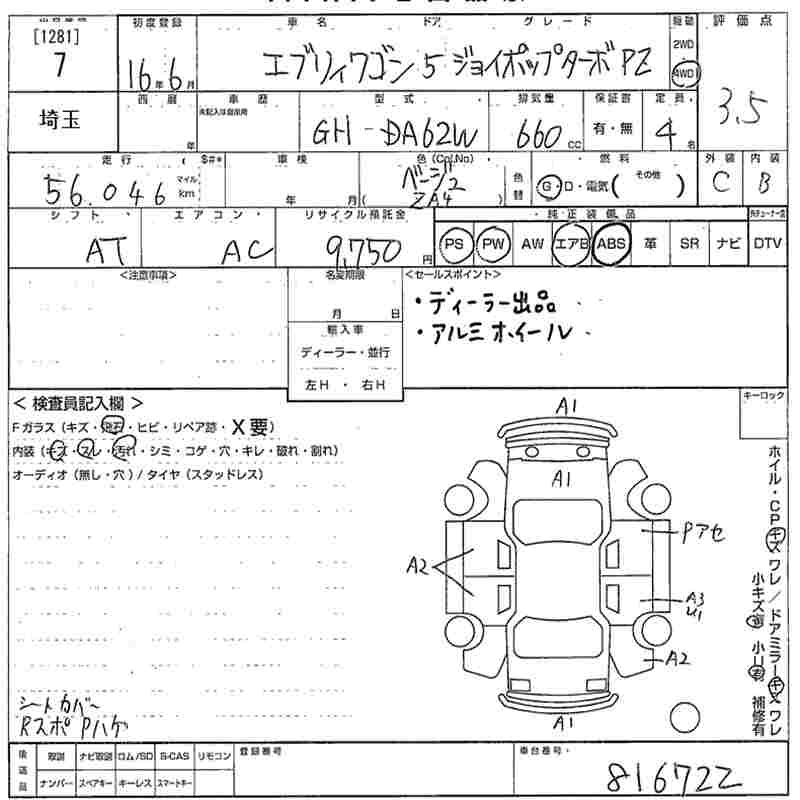 初度登録 車名 ドア グレード 駆動 評価点
[1281]
7
16年6月 エブリィワゴン 5 ジョイポップターボPZ 2WD 4WD 3.5
埼玉 西暦 年 車歴 未記入は自家用 型式 排気量 保証書 定員
GH-DA62W 660cc 有・無 4名
走行 ($#* 車検 色(Col,No) 燃料 その他 外装 内装
56.046 マイル km 年 月( ベージュ2 ZA4 ) 色替 G・D・電気( ) C B
シフト エアコン リサイクル預託金 純正装備品
AT AC 9,750円 PS PW AW エアB ABS 革 SR ナビ DTV
<注意事項> 名変期限 <セールスポイント>
月 日 ・ディーラー出品
輸入車 ・アルミホイール
ディーラー・並行
左H ・ 右H
< 検査員記入欄 > キーロック
Fガラス (キズ・飛石・ヒビ・リペア跡・X要)
内装 (キズ・スレ・汚れ・シミ・コゲ・穴・キレ・破れ・割れ)
オーディオ (無し・穴) / タイヤ (スタッドレス)
A1
A1
Pアセ
A2
A3
U1
A2
A1
ホイル・CPキズワレ/ドアミラーキズワレ
小キズ有 小U有 補修有
シートカバー
Rスポ Pハゲ
後送品 取説 ナビ取説 ロム/SD S-CAS リモコン 登録番号 車台番号
ナンバー スペアキー キーレス スマートキー 816722